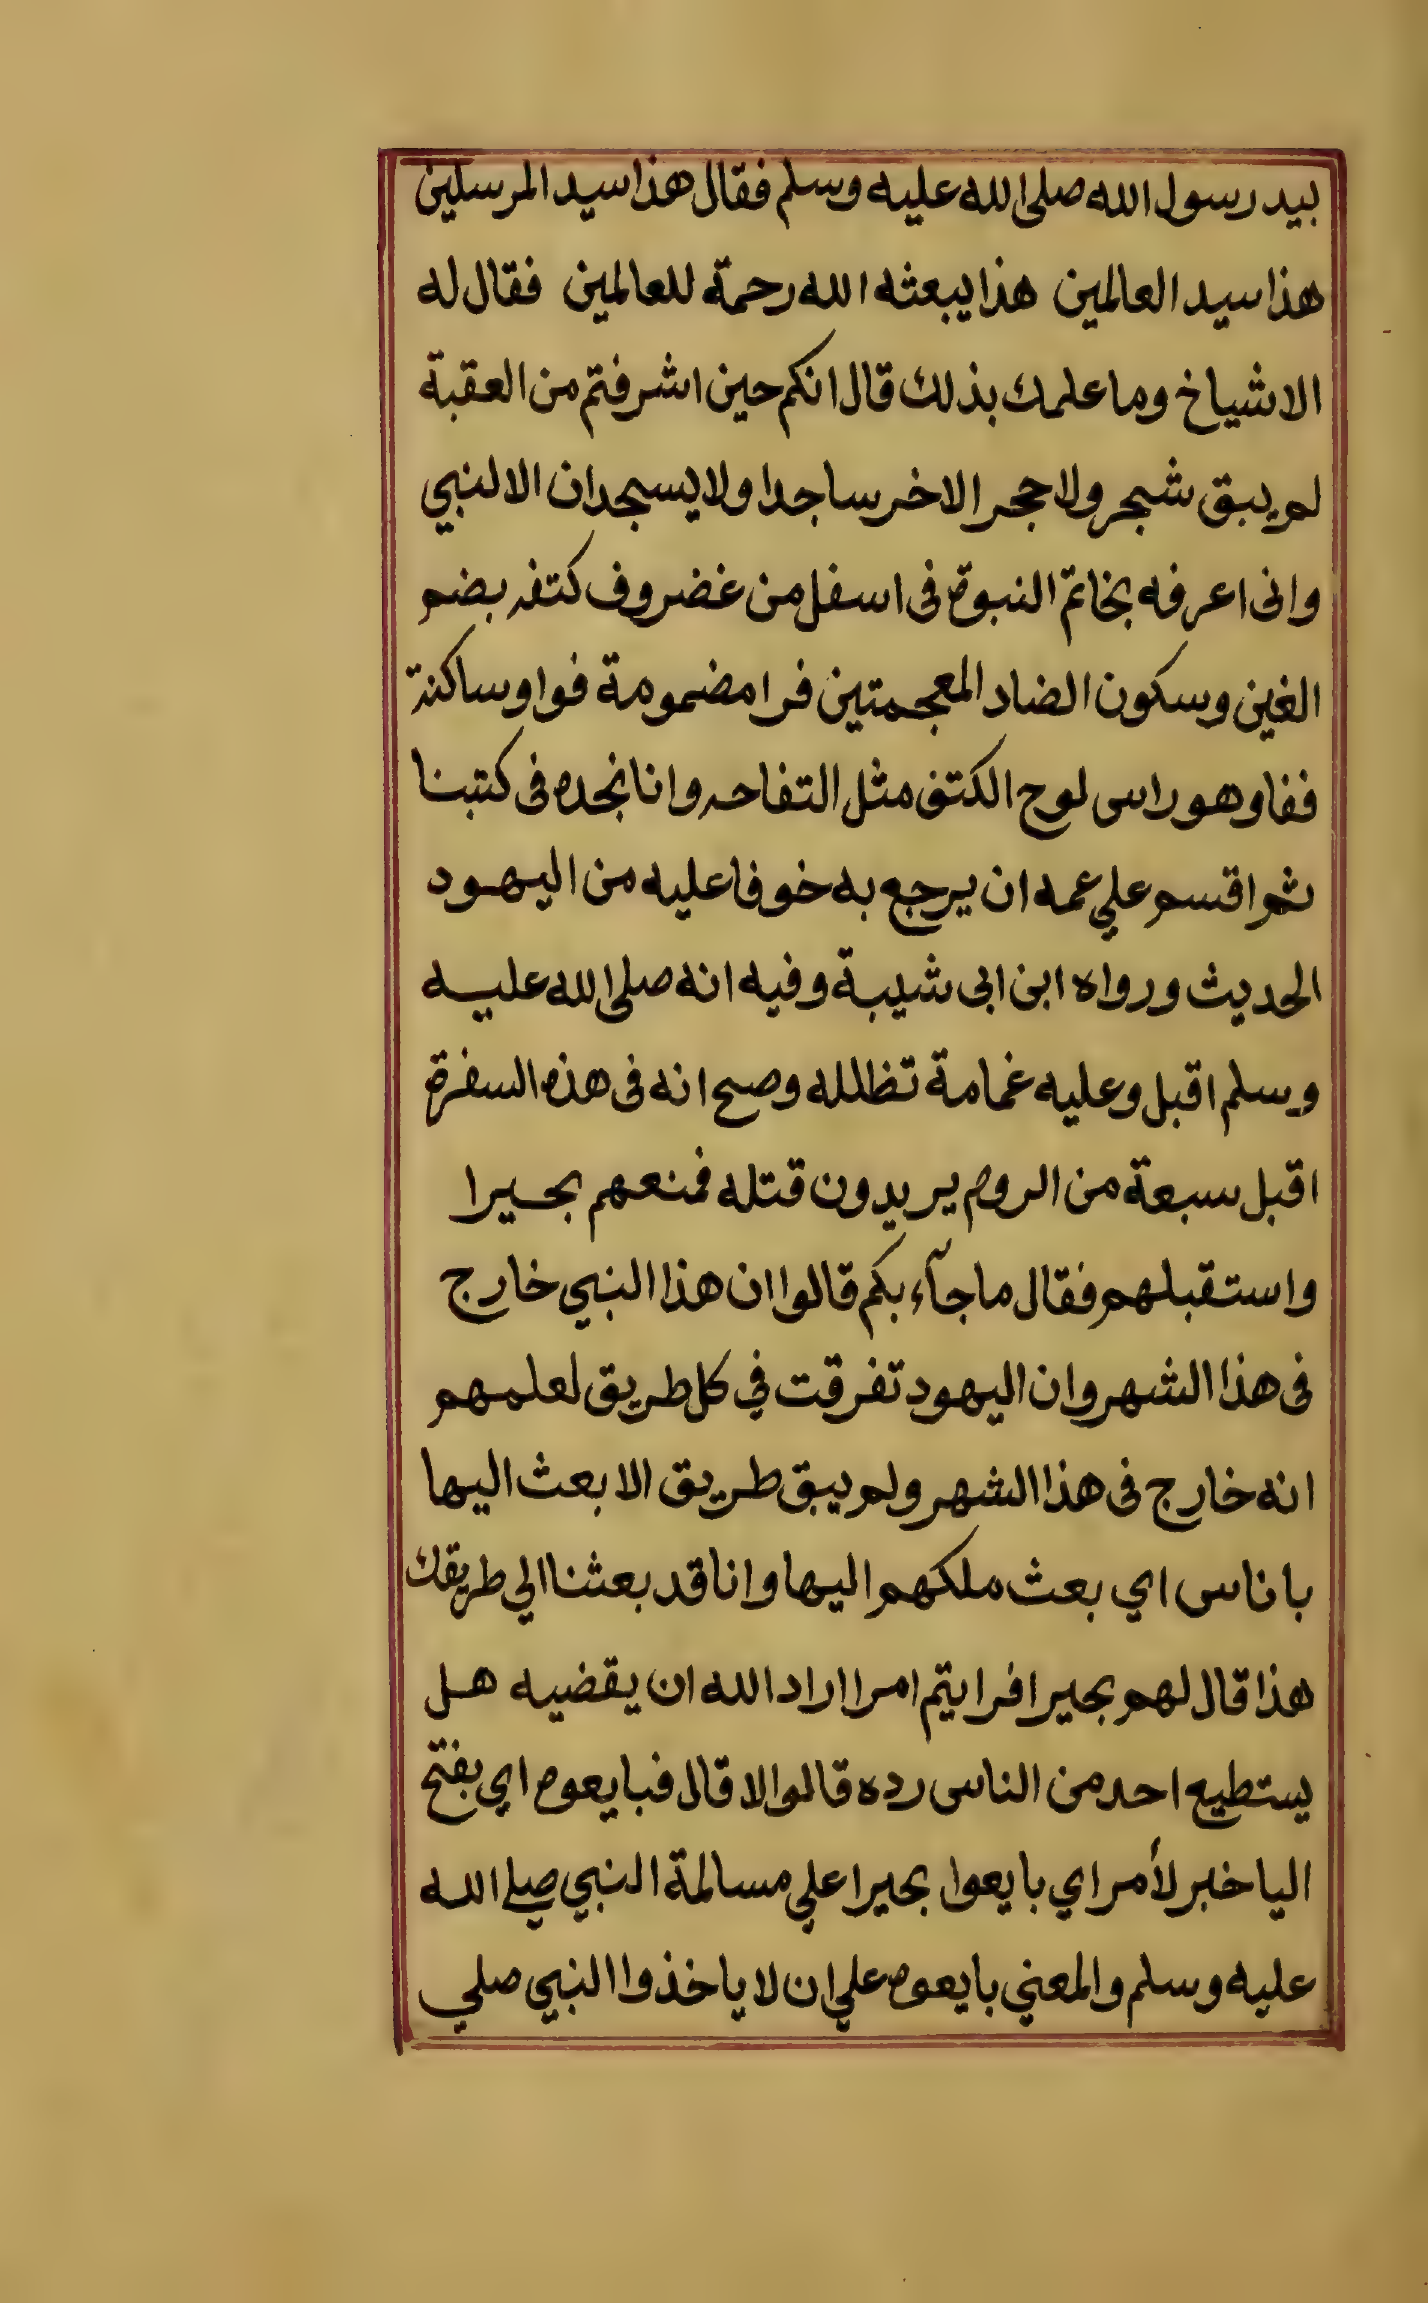 بيد رسول الله صلى الله عليه وسلم فقال هذا سيد المرسلين
هذا سيد العالمين هذا يبعثه الله رحمة للعالمين فقال له
الاشياخ وما علمك بذلك قال انكم حين اشرفتم من العقبة
لم يبق شجر ولا حجر الا خر ساجدا ولا يسجدان الا لنبي
وانى اعرفه بخاتم النبوة فى اسفل من غضروف كتفه بضم
الغين وسكون الضاد المعجمتين فرا مضمومة فواو ساكنة
ففا وهو راس لوح الكتف مثل التفاحه وانا نجده فى كتبنا
ثم اقسم علي عمه ان يرجع به خوفا عليه من اليهود
الحديث ورواه ابن ابى شيبة وفيه انه صلى الله عليه
وسلم اقبل وعليه غمامة تظلله وصح انه فى هذه السفرة
اقبل سبعة من الروم يريدون قتله فمنعهم بحيرا
واستقبلهم فقال ما جآء بكم قالوا ان هذا النبي خارج
فى هذا الشهر وان اليهود تفرقت في كل طريق لعلمهم
انه خارج فى هذا الشهر ولم يبق طريق الا بعث اليها
باناس اي بعث ملكهم اليها وانا قد بعثنا الي طريقك
هذا قال لهم بحيرا افرايتم امرا اراد الله ان يقضيه هل
يستطيع احد من الناس رده قالوا لا قال فبايعوه اي بفتح
اليا خبر لأمر اي بايعوا بحيرا علي مسالمة النبي صلي الله
عليه وسلم والمعني بايعوه علي ان لا ياخذوا النبي صلي